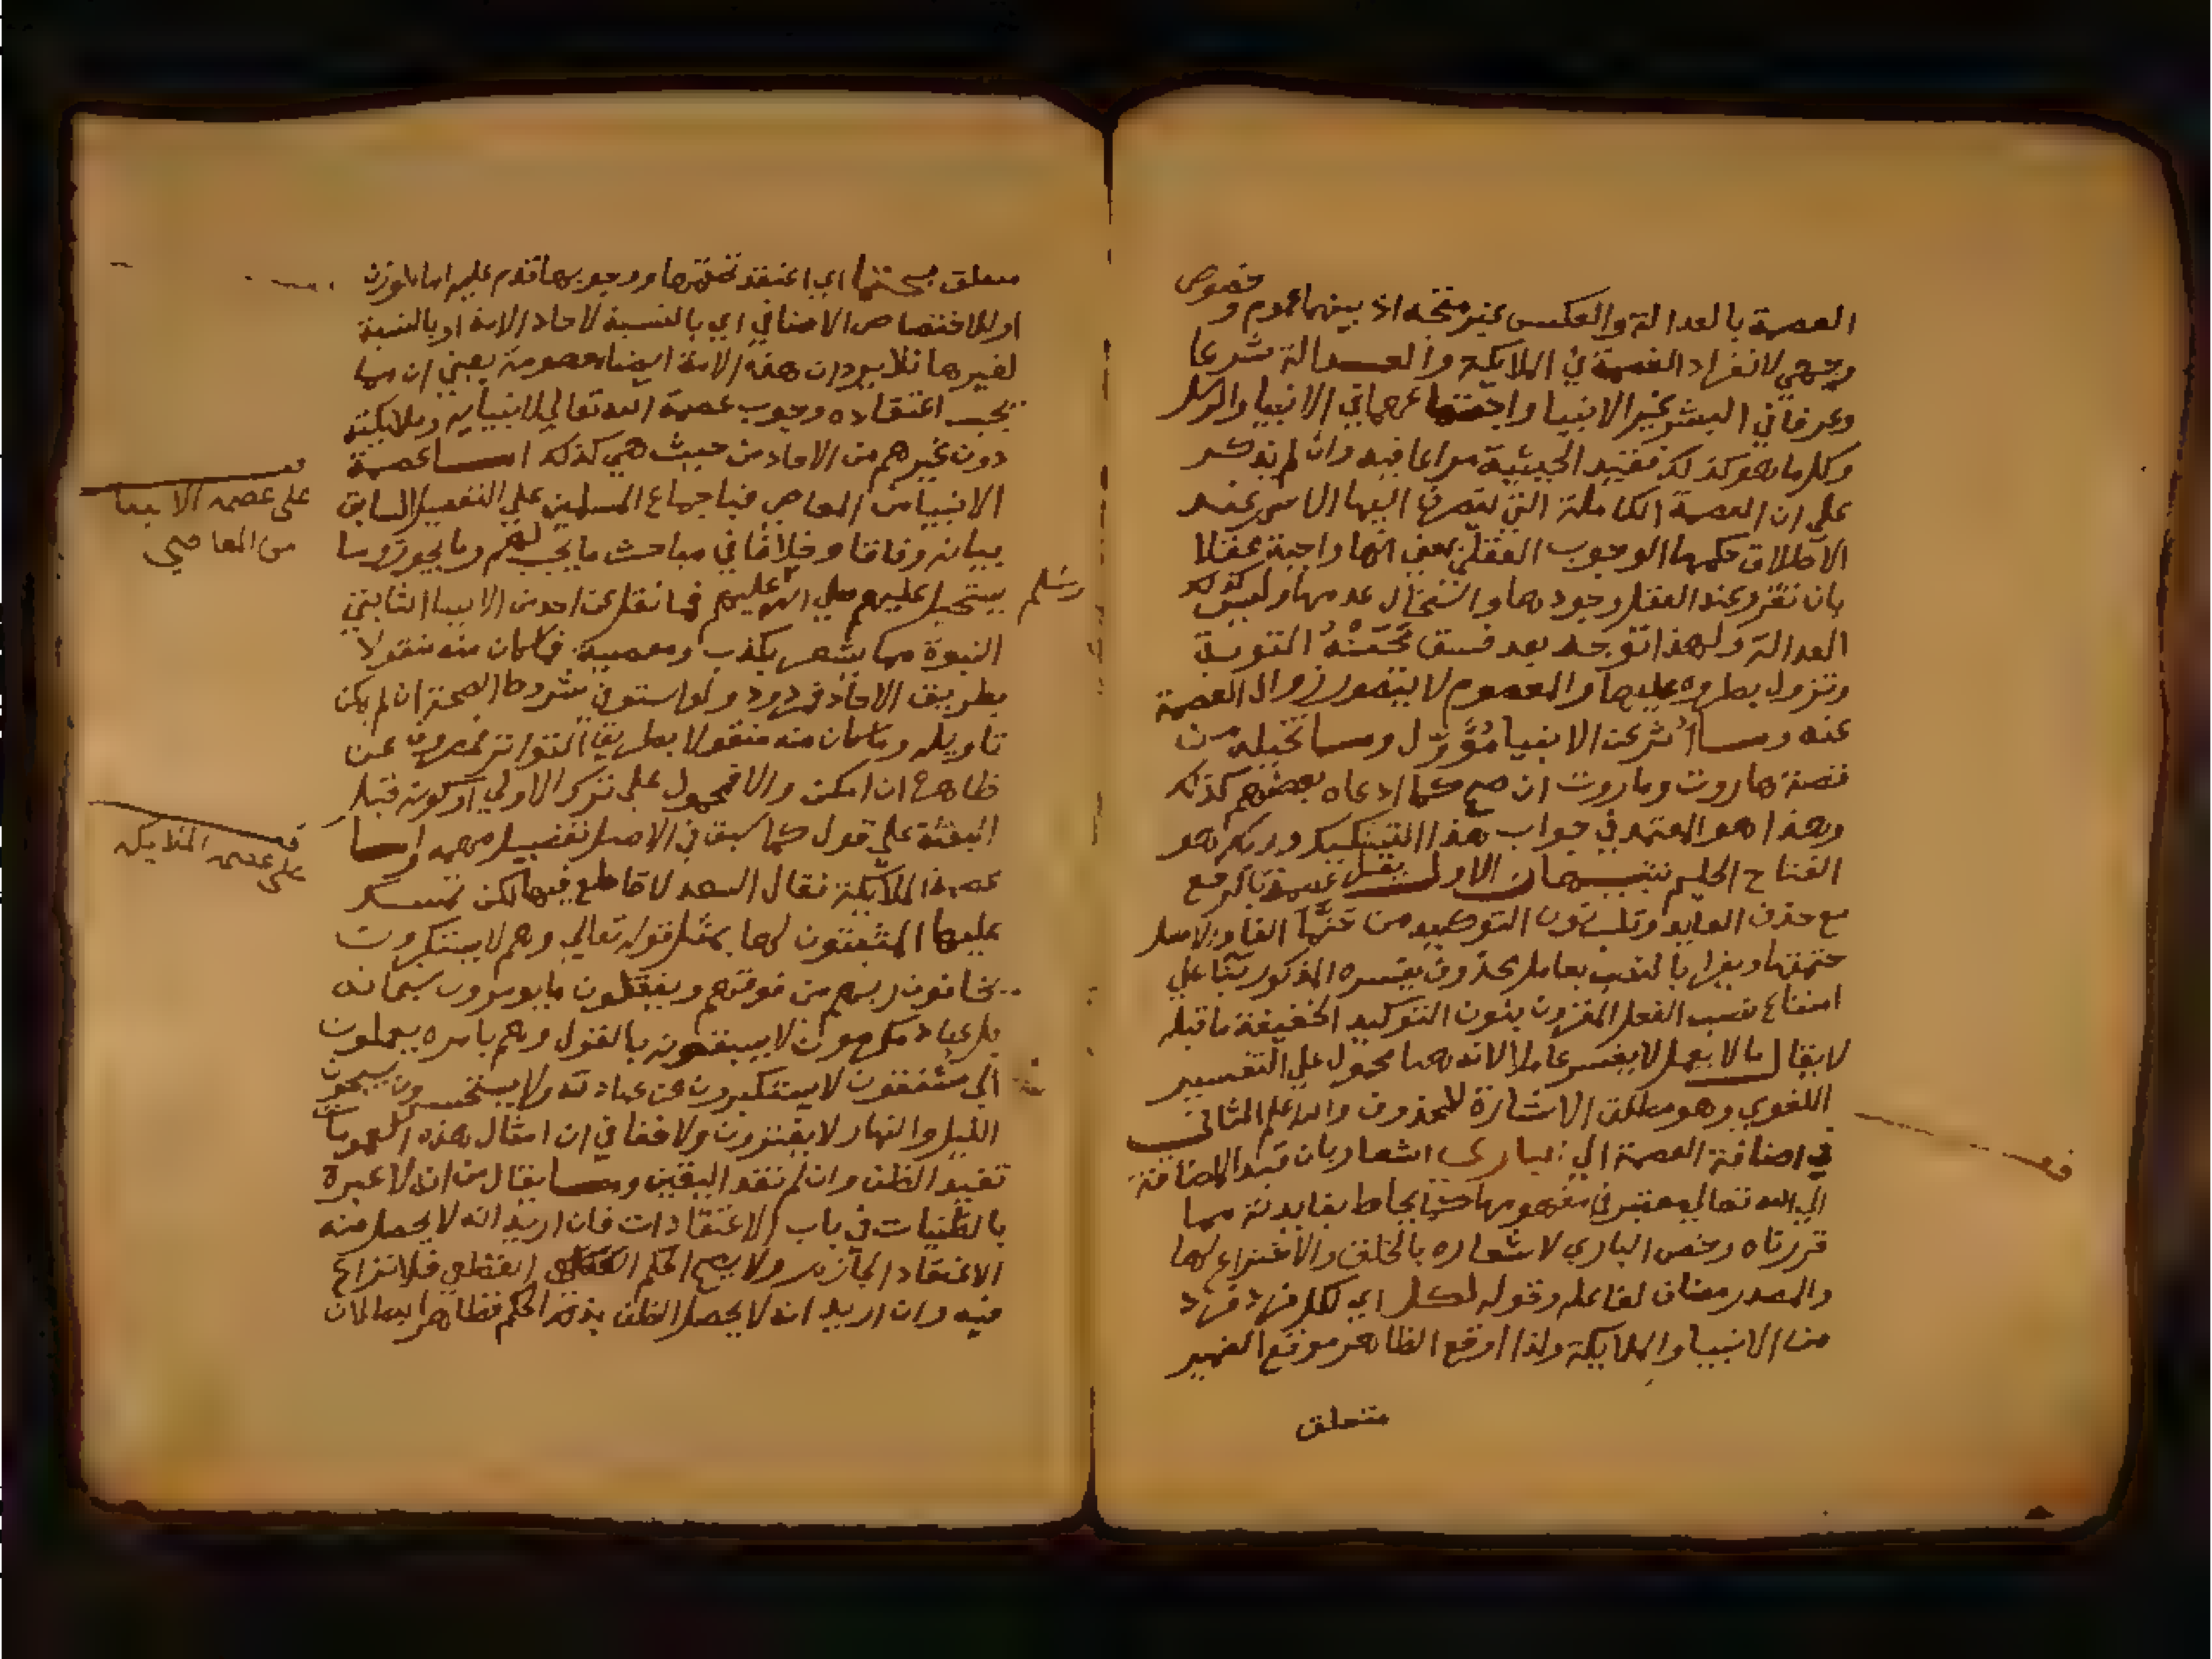 العصمة بالعدالة والعكس غير متجه اذ بينهما عموم و خصوص
وجهي لانفراد العصمة في الملايكة والعدالة شرعا
وعرفا في البشر غير الانبيا واجتماعهما في الانبيا والرسل
وكل ما هو كذلك فقيد الحيثية مراعا فيه وان لم يذكر
علي ان العصمة الكاملة التي ينصرف اليها الاسم عند
الاطلاق حكمها الوجوب العقلي بمعني انها واجبة عقلا
بان تقرر عند العقل وجودها واستحال عدمها وليس كذلك
العدالة ولهذا توجد بعد فسق مَحَتْهُ التوبة
وتزول بطروه عليها والمعصوم لا يتصور زوال العصمة
عنه وما اُثر عن الانبيا مُؤَوّل وما تخيله من
قصة هاروت وماروت ان صح كما ادعاه بعضهم كذلك
وهذا هو المعتمد في جواب هذا التشكيك وربك هو
الفتاح العليم تنبيهان الاول يقبل عصمة الرفع
مع حذف العايد وقلب نون التوكيد من حَتِّمَا الفا والاصل
حتمنها ويقرا بالنصب بعامل محذوف يفسره المذكور بنا علي
امتناع نصب الفعل المقرون بنون التوكيد الخفيفة ما قبله
لا يقال ما لا يعمل لا يفسر عاملا لانه هنا محمول علي التفسير
اللغوي وهو مطلق الاشارة للمحذوف والله اعلم الثاني
في اضافة العصمة الي الباري اشعار بان قيد الاضافة
الي الله تعالي معتبر في مفهومها حتي يحاط بفايدته مما
قررناه وخص الباري لاشعاره بالخلق والاختراع لها
والمصدر مضاف لفاعله وقوله لكل اي لكل فرد فرد
من الانبيا والملايكة ولذا اوقع الظاهر موقع الضمير
متعلق
متعلق بحتما اي اعتقد تحتمها ووجوبها قدم عليه اما للوزن
او للاختصاص الاضافي اي بالنسبة لاحاد الامة او بالنسبة
لغيرها فلا يرد ان هذه الامة ايضا معصومة يعني ان مما
يجب اعتقاده وجوب عصمة الله تعالي لانبيايه وملايكته
دون غيرهم من الاحاد من حيث هي كذلك اما عصمة
الانبيا من المعاصي فباجماع المسلمين علي التفصيل السابق
بيانه وفاقا وخلافا في مباحث ما يجب لهم وما يجوز وما
يستحيل عليهم صلي الله عليهم وسلم فما نقل عن احد من الانبيا الثابتي
النبوة مما يشعر بكذب ومعصية فما كان منه منقولا
بطريق الاحاد فمردود ولو استوفي شروط الصحة ان لم يمكن
تاويله وما كان منه منقولا بطريق التواتر فمصروف عن
ظاهره ان امكن والا فمحمول علي ترك الاولي او كونه قبل
البعثة علي قول كما سبق في الاصل تفصيله واما
عصمة الملايكة فقال السعد لا قاطع فيها لكن تمسك
عليها المثبتون لها بمثل قوله تعالي وهم لا يستكبرون
يخافون ربهم من فوقهم ويفعلون ما يومرون سبحانه
بل عباد مكرمون لا يسبقونه بالقول وهم بامره يعملون
الي مشفقون لا يستكبرون عن عبادته ولا يستحسرون يسبحون
الليل والنهار لا يفترون ولا خفا في ان امثال هذه العمومات
تفيد الظن وان لم تفد اليقين وما يقال من انه لا عبرة
بالظنيات في باب الاعتقادات فان اريد انه لا يحصل منه
الاعتقاد الجازم ولا يصح الحكم القطعي فلا نزاع
فيه وان اريد انه لا يحصل الظن بذلك الحكم فظاهر البطلان
قف
على عصمه الانبيا
من المعاصي
قف
على عصمه الملايكه
قف